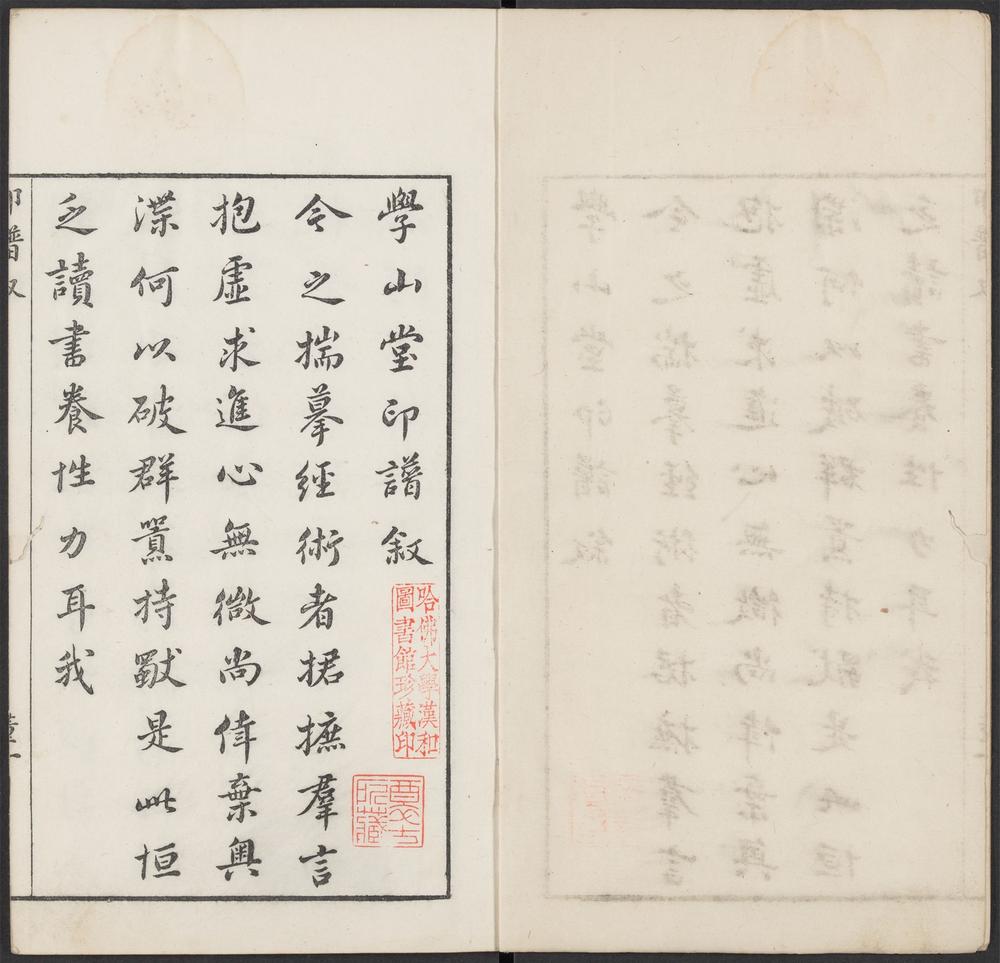 學山堂印譜叙
今之揣摹經術者捃摭羣言
抱虛求進心無微尚偉棄輿
渫何以破群嚣持猷是此恒
之讀書養性力耳我
哈佛大學漢和
圖書館珍藏印
印譜叙
董一